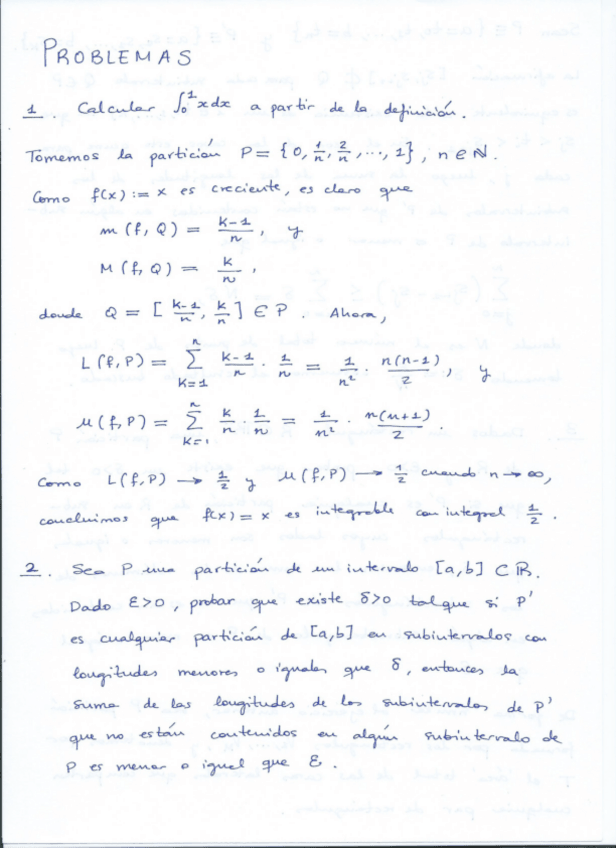 PROBLEMAS
1. Calcular ∫₀¹ x dx a partir de la definición.
Tomemos la partición P = {0, 1/n, 2/n, ..., 1}, n ∈ ℕ.
Como f(x) := x es creciente, es claro que
m(f, Q) = (k-1)/n, y
M(f, Q) = k/n,
donde Q = [(k-1)/n, k/n] ∈ P. Ahora,
L(f, P) = Σ_{k=1}^{n} (k-1)/n · 1/n = 1/n² · n(n-1)/2, y
U(f, P) = Σ_{k=1}^{n} k/n · 1/n = 1/n² · n(n+1)/2.
Como L(f, P) → 1/2 y U(f, P) → 1/2 cuando n → ∞,
concluimos que f(x) = x es integrable con integral 1/2.
2. Sea P una partición de un intervalo [a,b] ⊂ ℝ.
Dado ε>0, probar que existe δ>0 tal que si P'
es cualquier partición de [a,b] en subintervalos con
longitudes menores o iguales que δ, entonces la
suma de las longitudes de los subintervalos de P'
que no están contenidos en algún subintervalo de
P es menor o igual que ε.